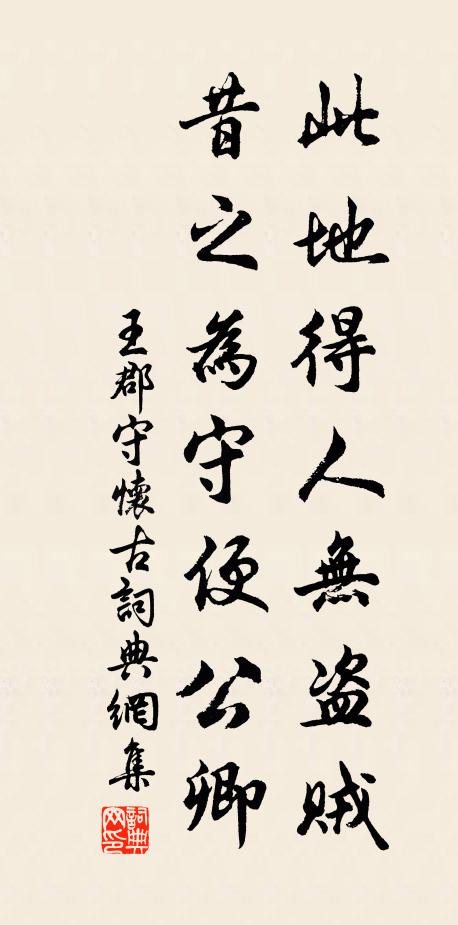 此地得人無盜賊
昔之為守便公卿
王郡守懷古詞典網集
詞典网印